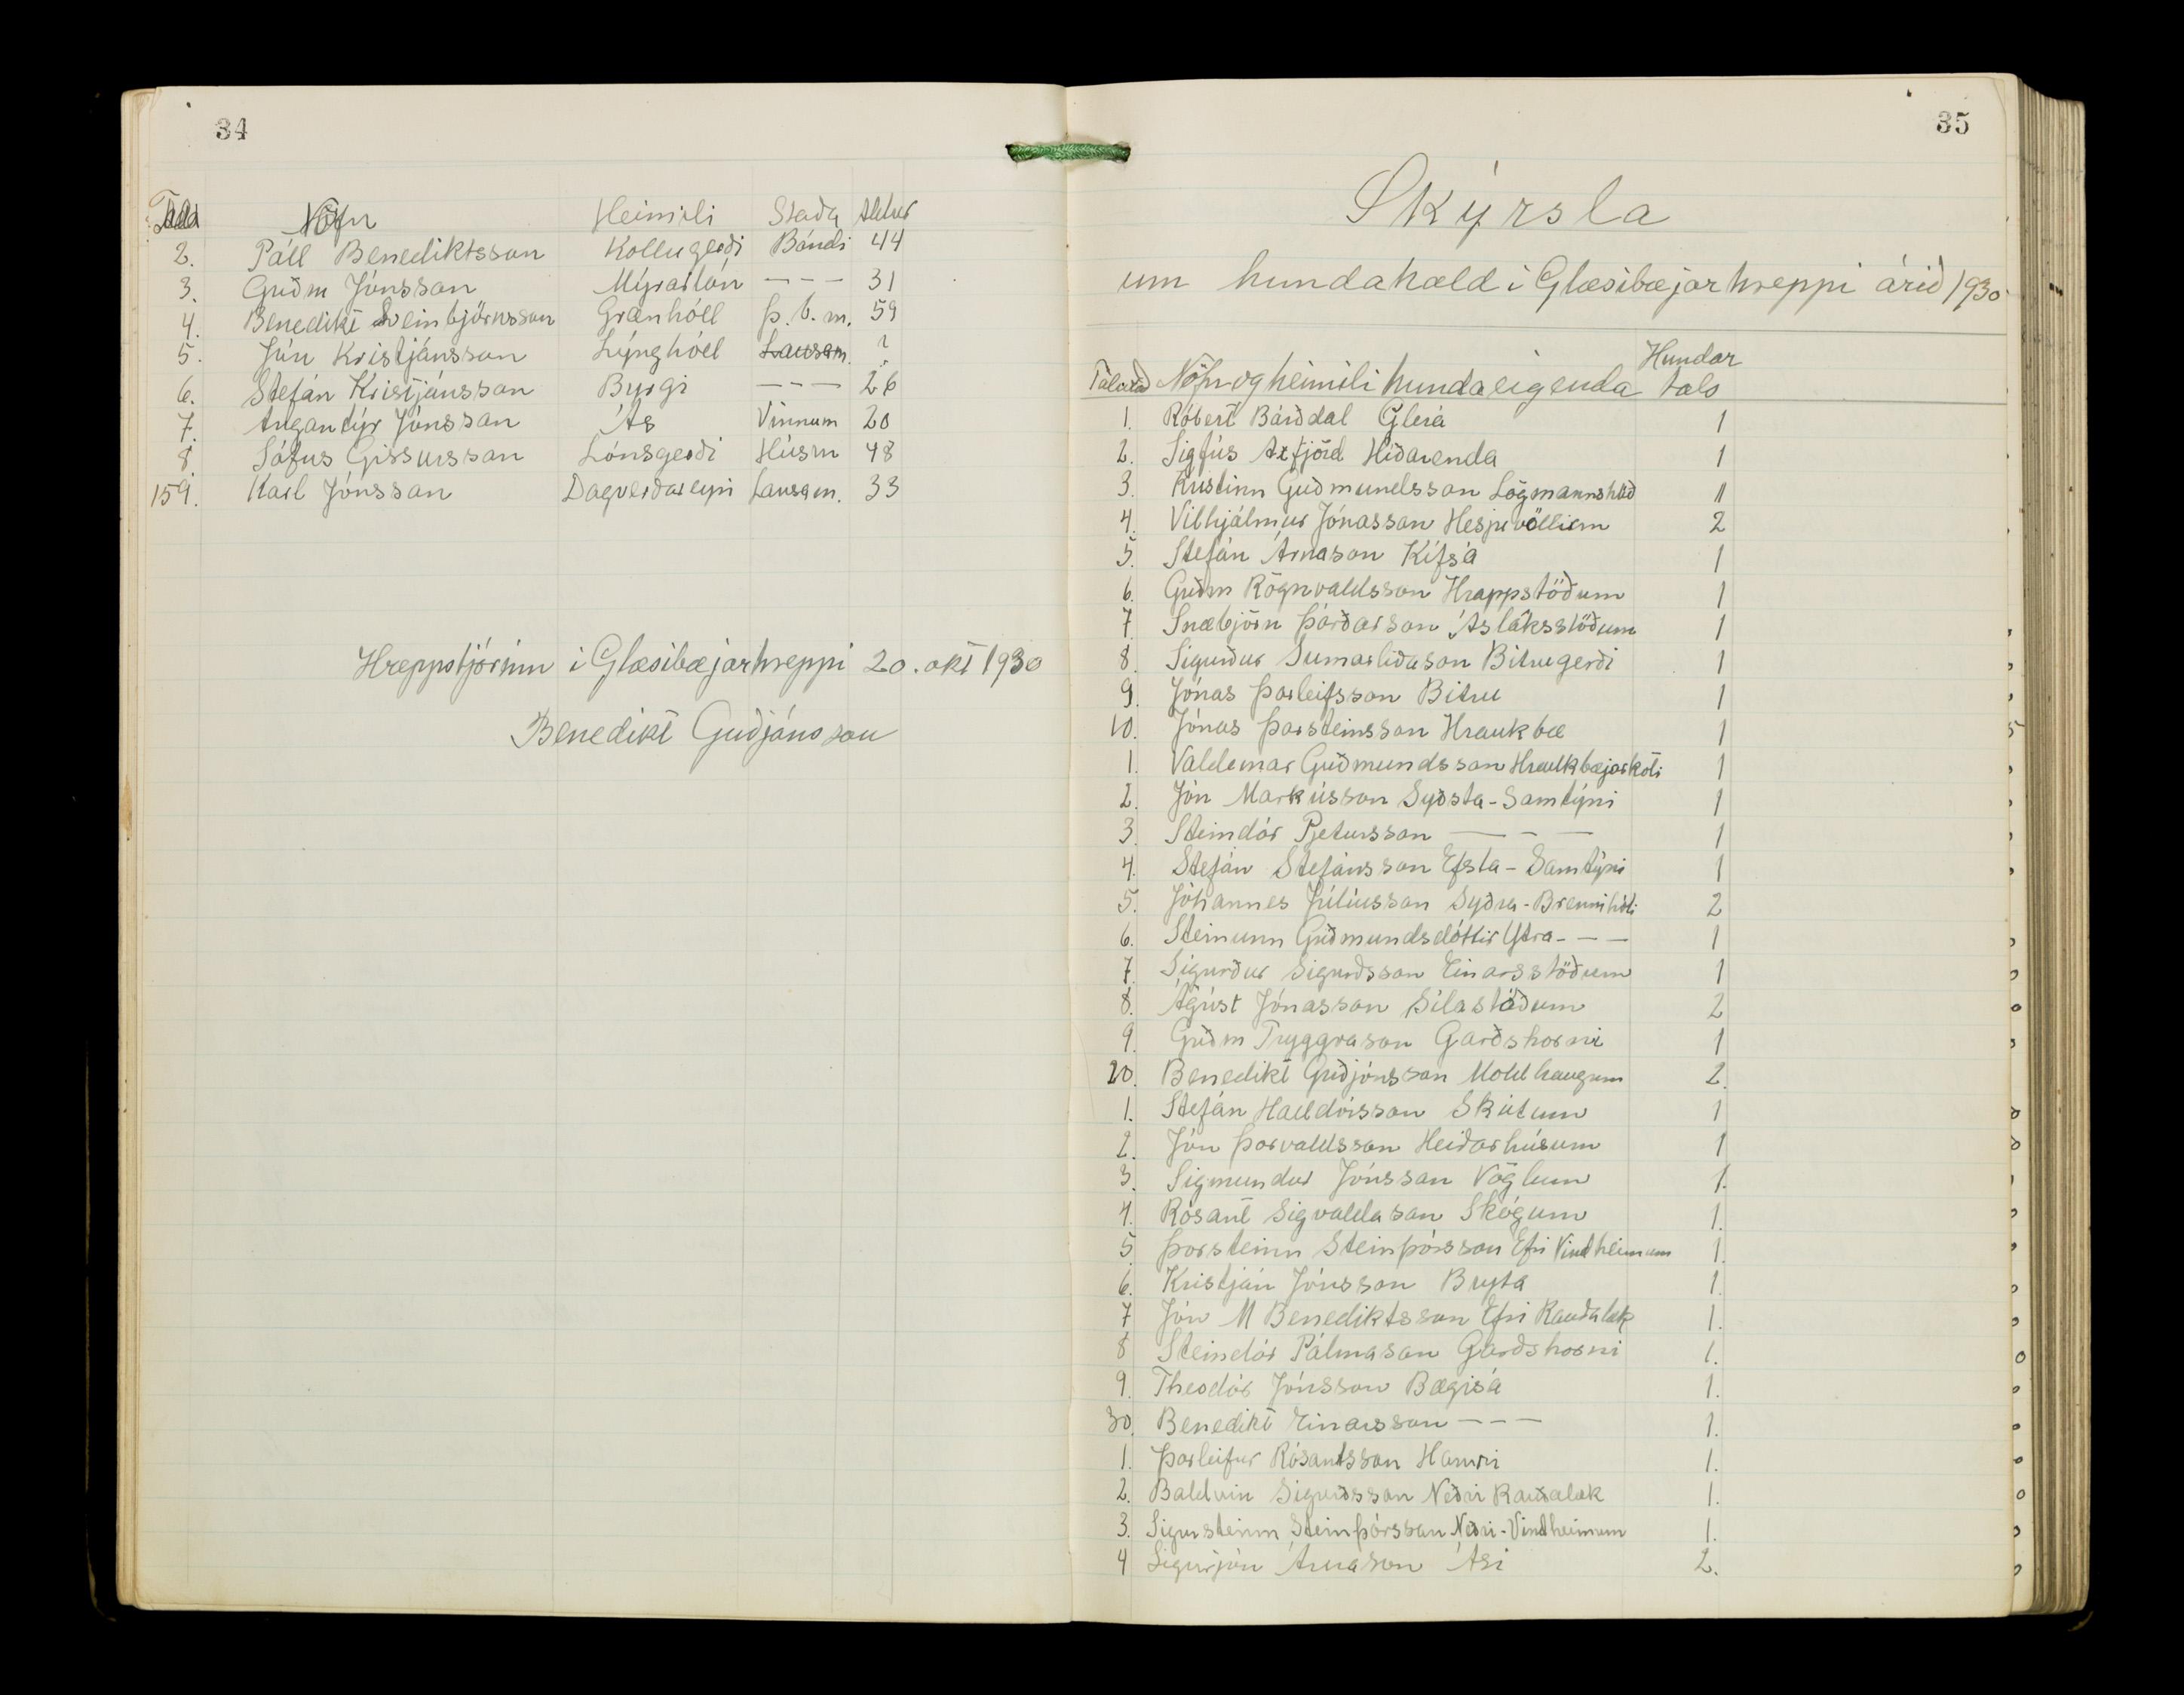 34
Nöfn Heimili Staða Aldur
2. Páll Benediktsson Kollugerði Bóndi 44
3. Guðm Jónsson Mýrarlón - - - 31
4. Benedikt Sveinbjörnsson Grænhóll þ. b. m. 59
5. Jón Kristjánsson Lýnghóll Lausam. ?
6. Stefán Kristjánsson Byrgi - - - 26
7. Angantýr Jónsson Ás Vinnum 20
8. Sófus Gissursson Lónsgerði Húsm 48
159. Karl Jónsson Dagverðareyri Lausam. 33
Hreppstjórinn i Glæsibæjarhreppi 20. okt 1930
Benedikt Guðjónsson
35
Skýrsla
um hundahald i Glæsibæjarhreppi árið 1930
Hundar
Nöfn og heimili hundaeigenda tals
1. Róbert Bárðdal Glerá 1
2. Sigfús Axfjörd Hlíðarenda 1
3. Kristinn Guðmundsson Lögmannshlíð 1
4. Vilhjálmur Jónasson Hesjuvöllum 2
5. Stefán Árnason Kífsá 1
6. Guðm Rögnvaldsson Hrappstöðum 1
7. Snæbjörn Þórðarson Ásláksstöðum 1
8. Sigurður Sumarliðason Bitrugerði 1
9. Jónas Þorleifsson Bitru 1
10. Jónas Þorsteinsson Hraukbæ 1
1. Valdemar Guðmundsson Hraukbæjarkoti 1
2. Jón Markússon Syðsta-Samtýni 1
3. Steindór Pjetursson — - — 1
4. Stefán Stefánsson Efsta-Samtýni 1
5. Jóhannes Júlíusson Syðra-Brennihóli 2
6. Steinunn Guðmundsdóttir Ytra- - — 1
7. Sigurður Sigurðsson Einarsstöðum 1
8. Ágúst Jónasson Sílastöðum 2
9. Guðm Tryggvason Garðshorni 1
20. Benedikt Guðjónsson Moldhaugum 2.
1. Stefán Halldórsson Skútum 1
2. Jón Þorvaldsson Heiðarhúsum 1
3. Sigmundur Jónsson Vöglum 1.
4. Rósant Sigvaldason Skógum 1.
5. Þorsteinn Steinþórsson Efri Vindheimum 1.
6. Kristján Jónsson Bryta 1.
7 Jón M Benediktsson Efri Rauðalæk 1.
8 Steindór Pálmason Garðshorni 1.
9. Theodór Jónsson Bægisá 1.
30. Benedikt Einarsson - - - 1.
1. Þorleifur Rósantsson Hamri 1.
2. Baldvin Sigurðsson Neðri Rauðalæk 1.
3. Sigursteinn Steinþórsson Neðri-Vindheimum 1.
4 Sigurjón Árnason Ási 2.